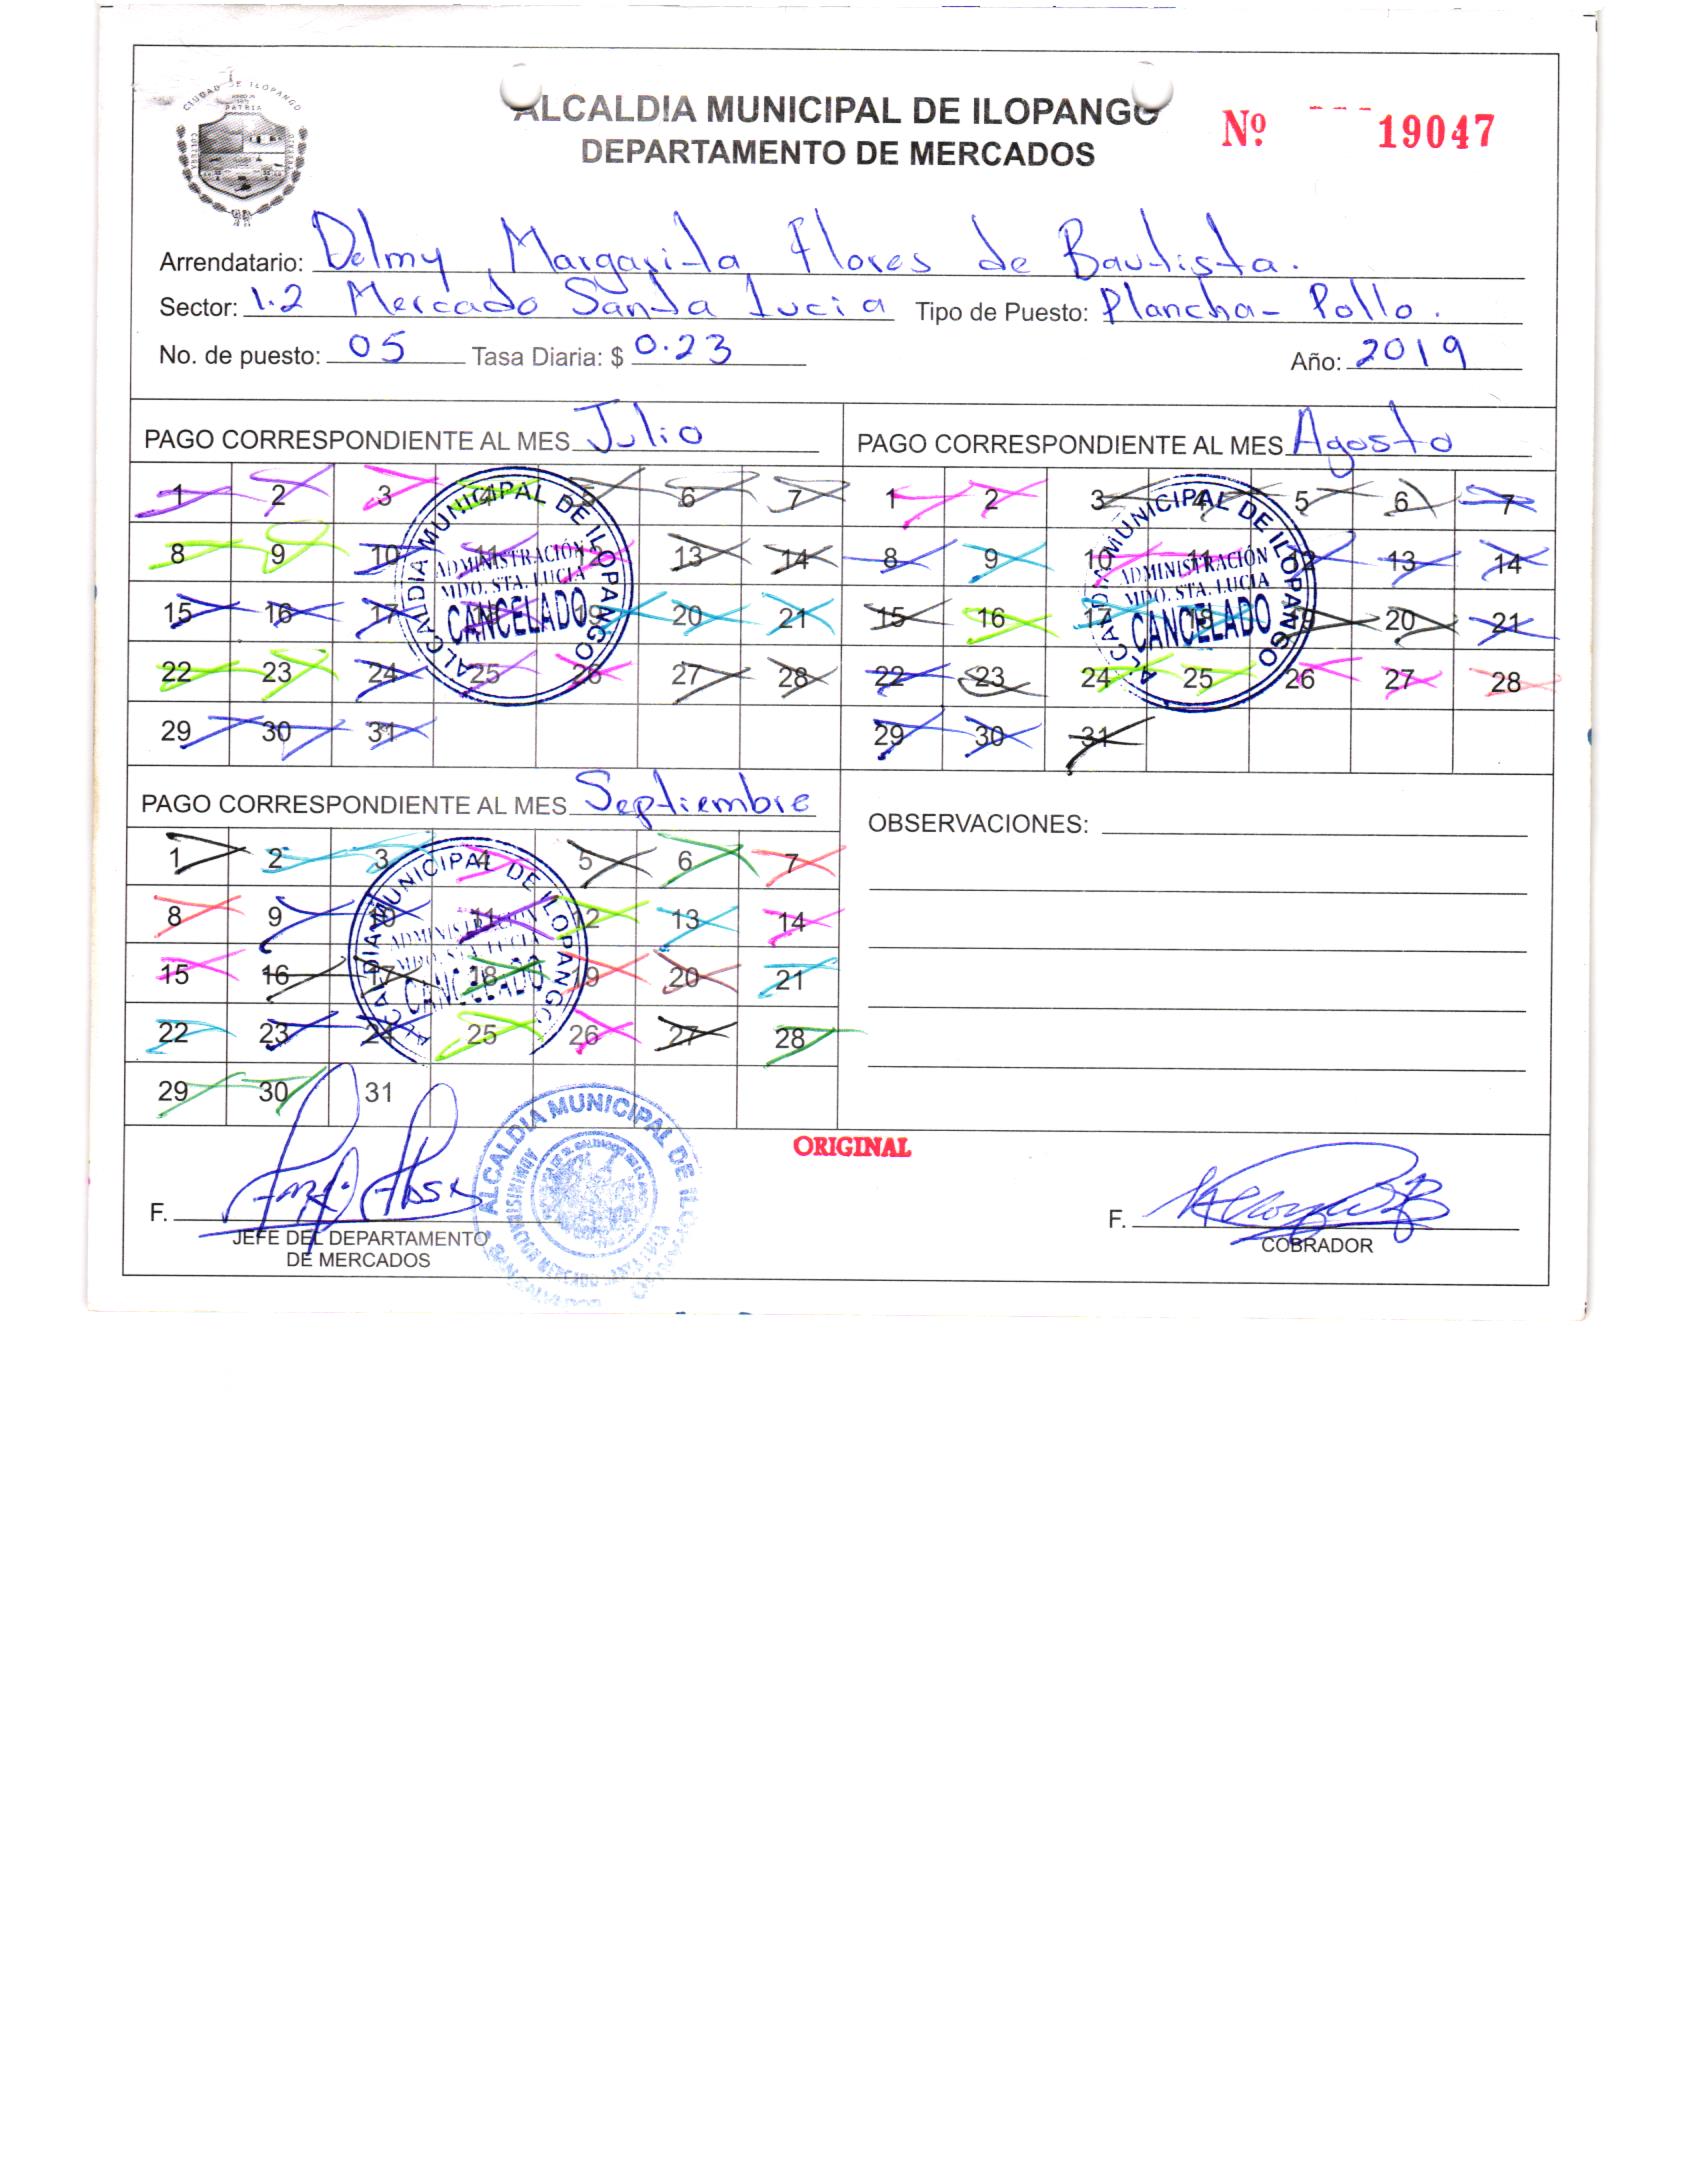 CIUDAD DE ILOPANGO
PATRIA
ALCALDIA MUNICIPAL DE ILOPANGO
DEPARTAMENTO DE MERCADOS
Nº 19047
Arrendatario: Delmy Margarita Flores de Bautista.
Sector: 1.2 Mercado Santa Lucia Tipo de Puesto: Plancha - Pollo.
No. de puesto: 05 Tasa Diaria: $ 0.23 Año: 2019
PAGO CORRESPONDIENTE AL MES Julio
1 2 3 4 5 6 7
8 9 10 11 12 13 14
15 16 17 18 19 20 21
22 23 24 25 26 27 28
29 30 31
ALCALDIA MUNICIPAL DE ILOPANGO
ADMINISTRACIÓN
MDO. STA. LUCIA
CANCELADO
PAGO CORRESPONDIENTE AL MES Agosto
1 2 3 4 5 6 7
8 9 10 11 12 13 14
15 16 17 18 19 20 21
22 23 24 25 26 27 28
29 30 31
ALCALDIA MUNICIPAL DE ILOPANGO
ADMINISTRACIÓN
MDO. STA. LUCIA
CANCELADO
PAGO CORRESPONDIENTE AL MES Septiembre
1 2 3 4 5 6 7
8 9 10 11 12 13 14
15 16 17 18 19 20 21
22 23 24 25 26 27 28
29 30 31
ALCALDIA MUNICIPAL DE ILOPANGO
ADMINISTRACIÓN
MDO. STA. LUCIA
CANCELADO
OBSERVACIONES:
ORIGINAL
F.
JEFE DEL DEPARTAMENTO
DE MERCADOS
ALCALDIA MUNICIPAL DE ILOPANGO
F.
COBRADOR